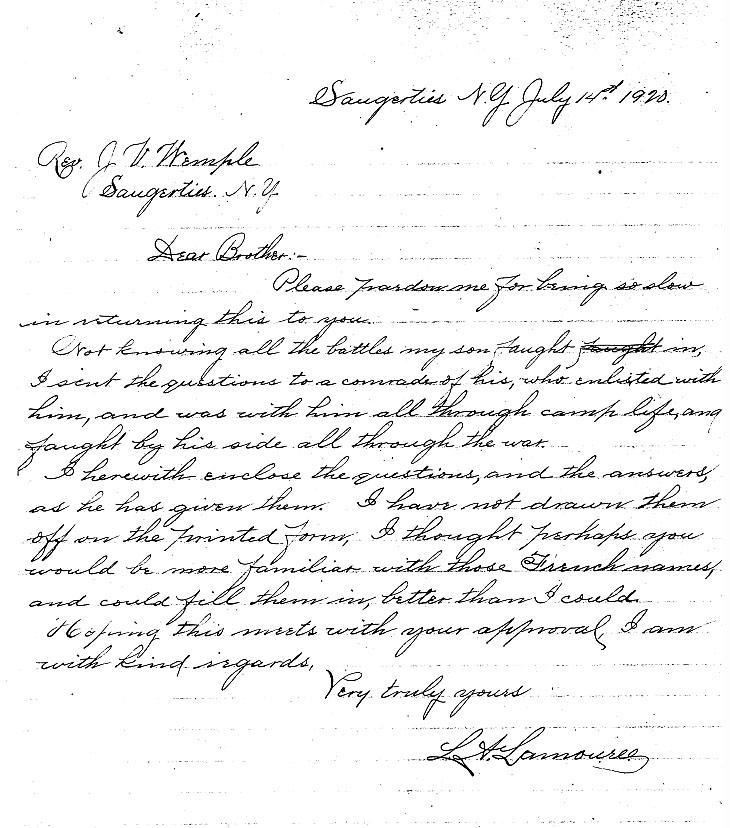 Saugerties N.Y. July 14th 1920.
Rev. J. V. Wemple
Saugerties. N.Y.
Dear Brother:-
Please pardon me for being so slow
in returning this to you.
Not knowing all the battles my son, faught faught in,
I sent the questions to a comrade of his, who enlisted with
him, and was with him all through camp life, and
faught by his side all through the war.
I herewith enclose the questions, and the answers,
as he has given them. I have not drawn them
off on the printed form, I thought perhaps you
would be more familiar with those French names,
and could fill them in, better than I could.
Hoping this meets with your approval, I am
with kind regards,
Very truly yours
L. A. Lamouree